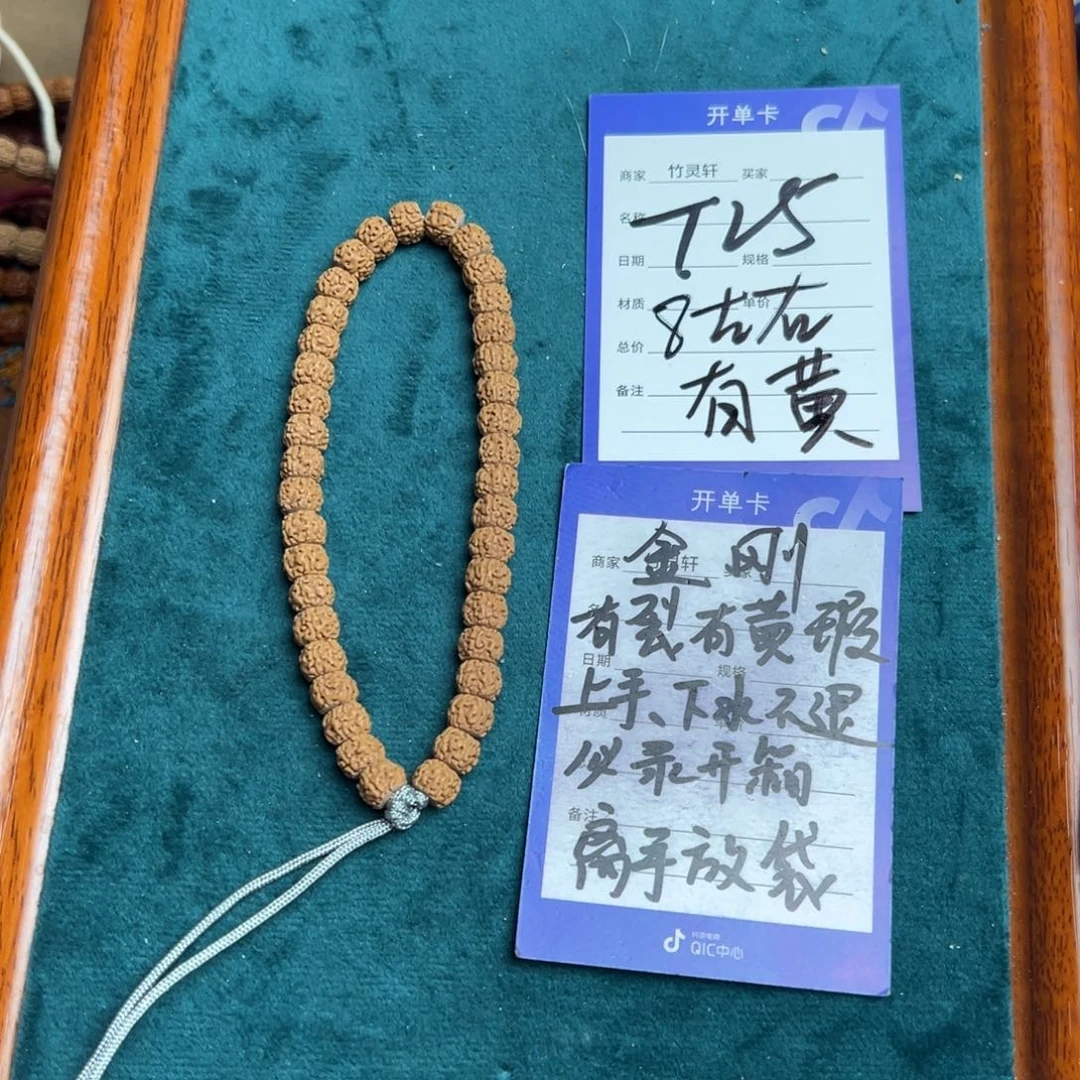 开单卡
商家 竹灵轩 买家
名称 TL5
日期 规格
材质 8左右 单价
总价
备注 有黄
开单卡
商家 金刚 轩
有裂有黄瑕
日期 规格
上手、下水不退
必录开箱
备注
离手放袋
抖音电商
QIC中心